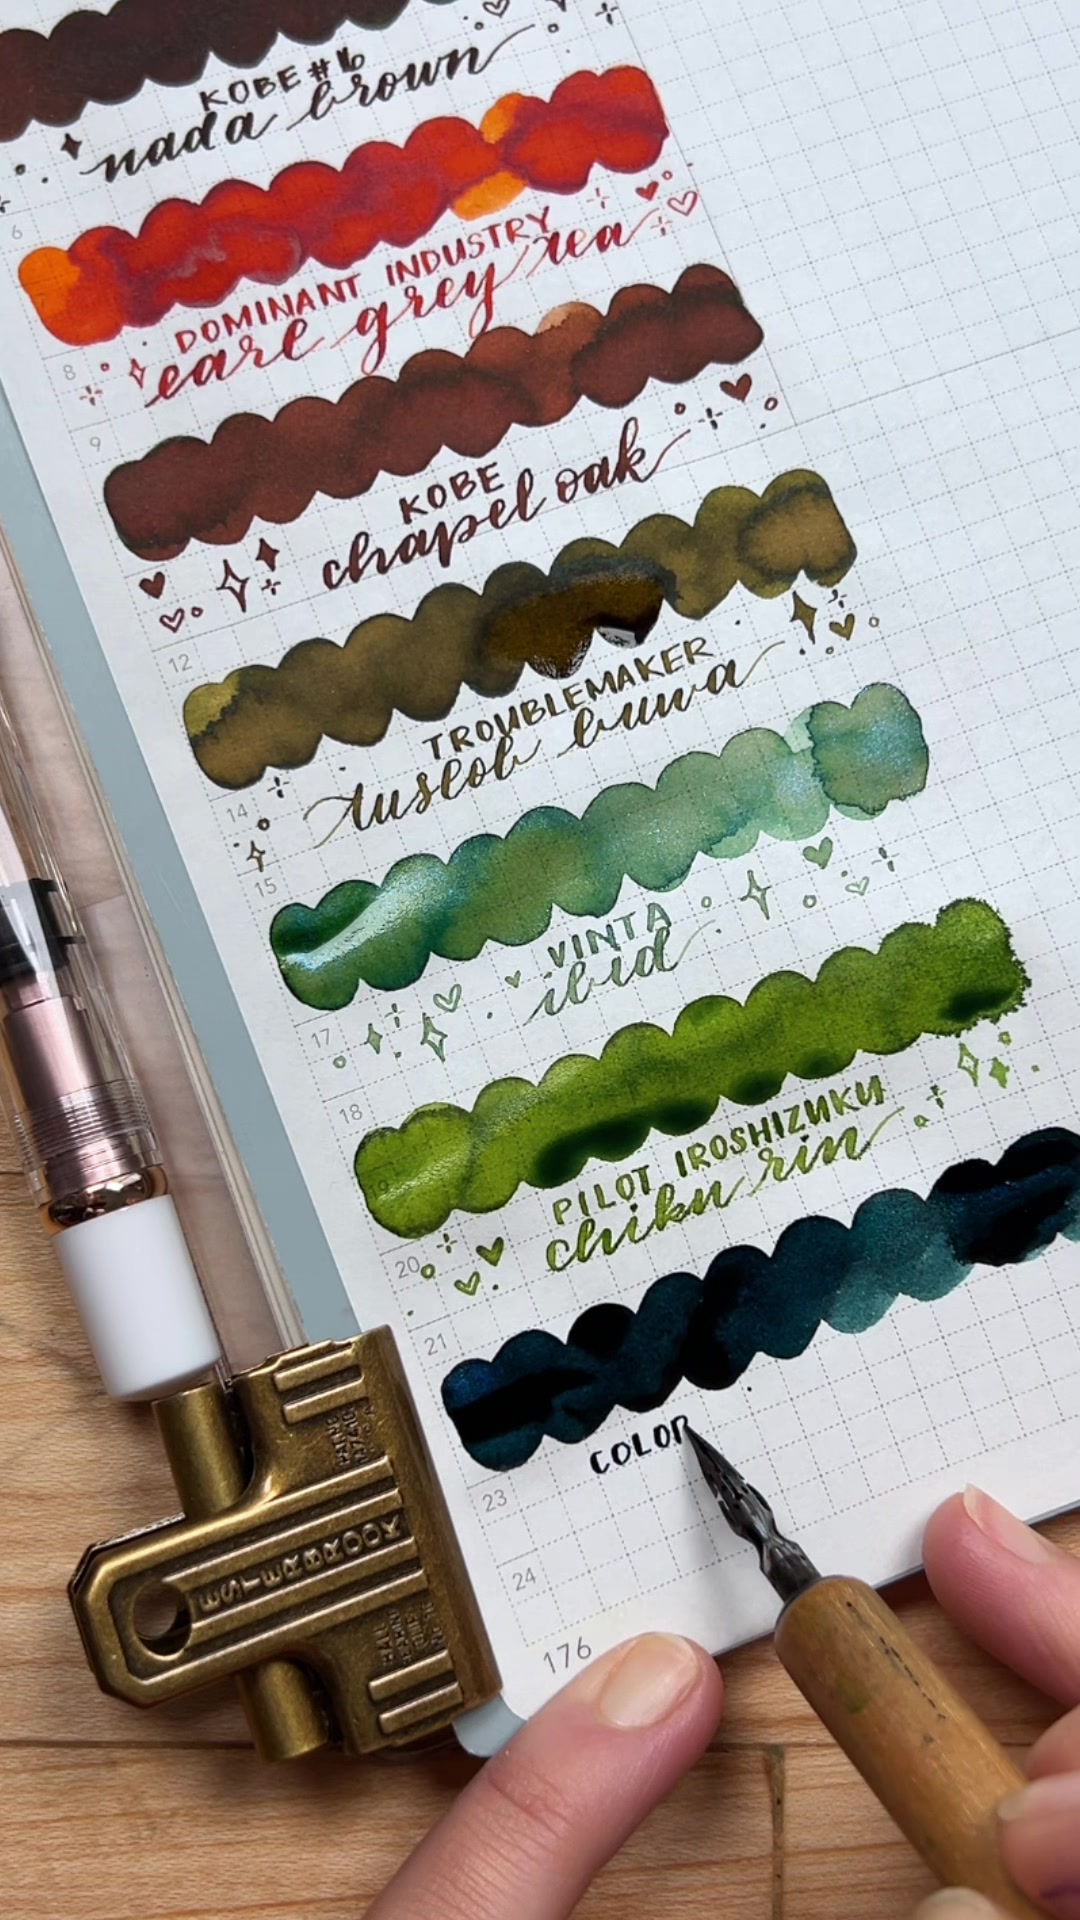 KOBE #16
nada brown
6
DOMINANT INDUSTRY
earl grey tea
8
9
KOBE
chapel oak
12
TROUBLEMAKER
tuslob buwa
14
15
VINTA
ibid
17
18
PILOT IROSHIZUKU
chiku rin
20
21
COLOR
23
24
176
ESTERBROOK